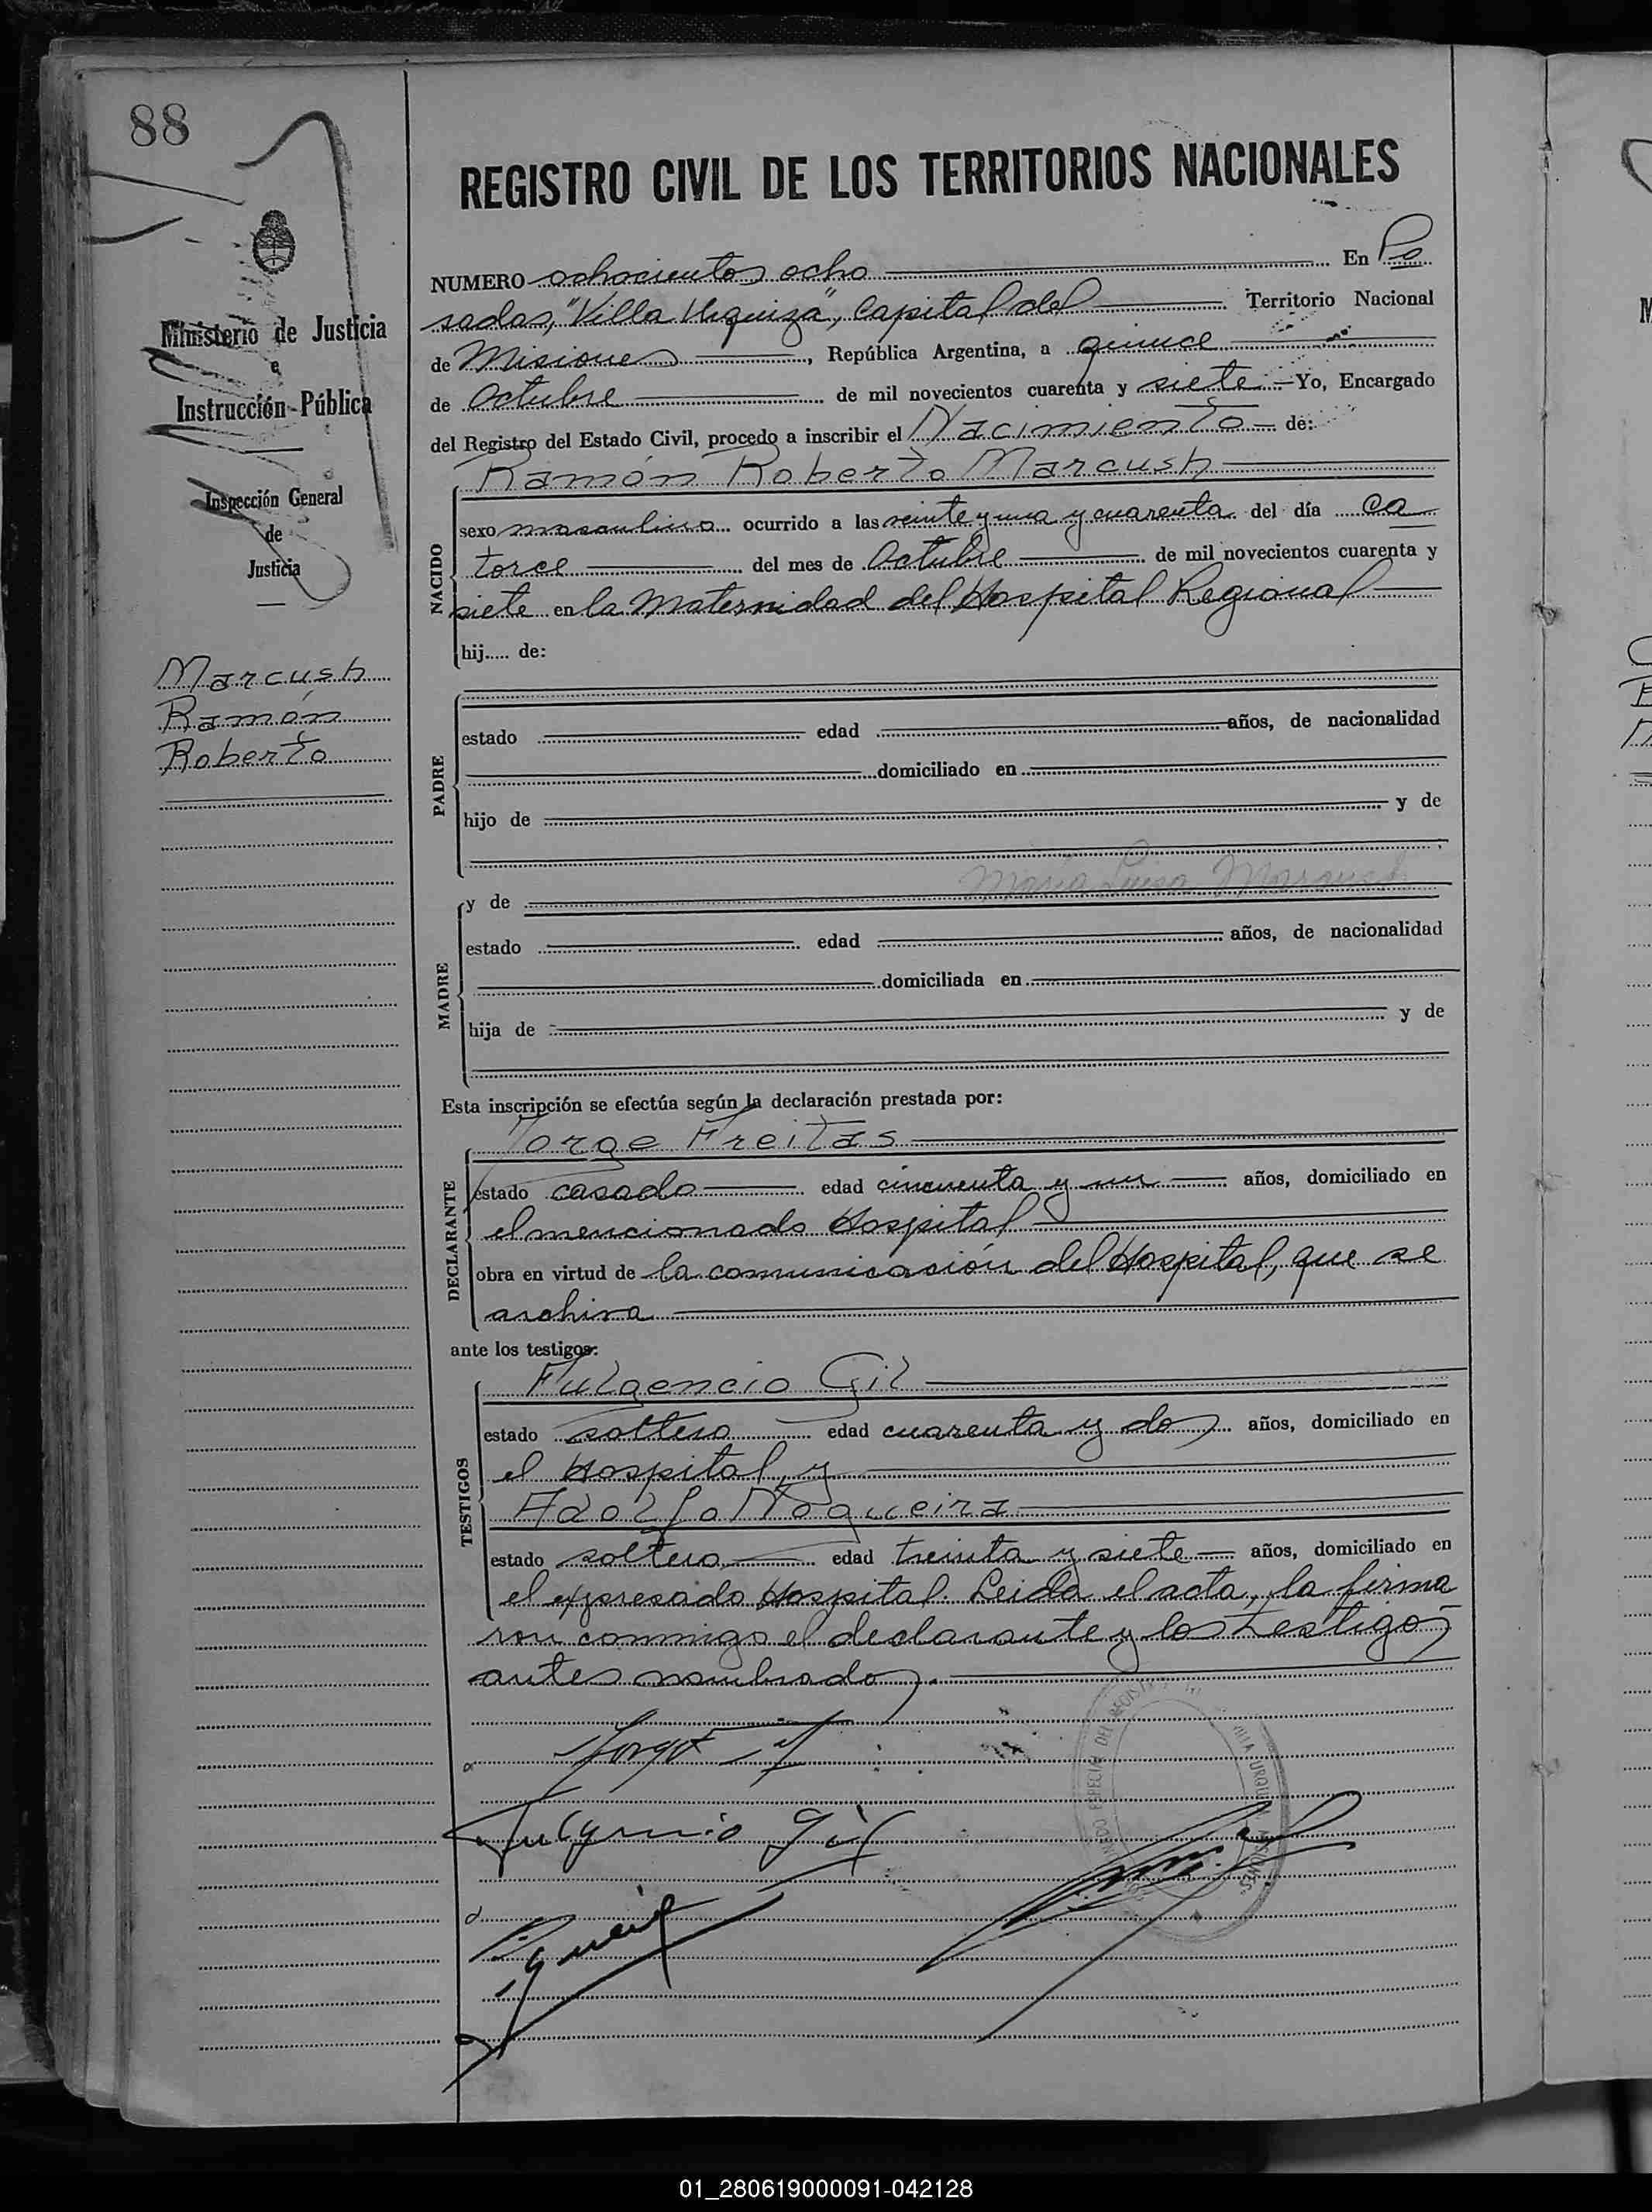 88
REGISTRO CIVIL DE LOS TERRITORIOS NACIONALES
Ministerio de Justicia
e
Instrucción Pública
Inspección General
de
Justicia
Marcush
Ramón
Roberto
NUMERO ochocientos ocho En Po
sadas, "Villa Urquiza", Capital del Territorio Nacional
de Misiones, República Argentina, a quince
de Octubre de mil novecientos cuarenta y siete Yo, Encargado
del Registro del Estado Civil, procedo a inscribir el Nacimiento de:
Ramón Roberto Marcush
NACIDO
sexo masculino ocurrido a las veinte y una y cuarenta del día ca
torce del mes de Octubre de mil novecientos cuarenta y
siete en la Maternidad del Hospital Regional
hij..... de:
PADRE
estado edad años, de nacionalidad
domiciliado en
hijo de y de
María Luisa
MADRE
y de
estado edad años, de nacionalidad
domiciliada en
hija de y de
Esta inscripción se efectúa según la declaración prestada por:
Jorge Freitas
DECLARANTE
estado casado edad cincuenta y un años, domiciliado en
el mencionado Hospital
obra en virtud de la comunicación del Hospital, que se
archiva
ante los testigos:
Fulgencio Gil
TESTIGOS
estado soltero edad cuarenta y dos años, domiciliado en
el Hospital, y
Adolfo Nogueira
estado soltero edad treinta y siete años, domiciliado en
el expresado Hospital. Leida el acta, la firma
ron conmigo el declarante y los testigos
antes nombrados.
Fulgencio Gil
01_280619000091-042128